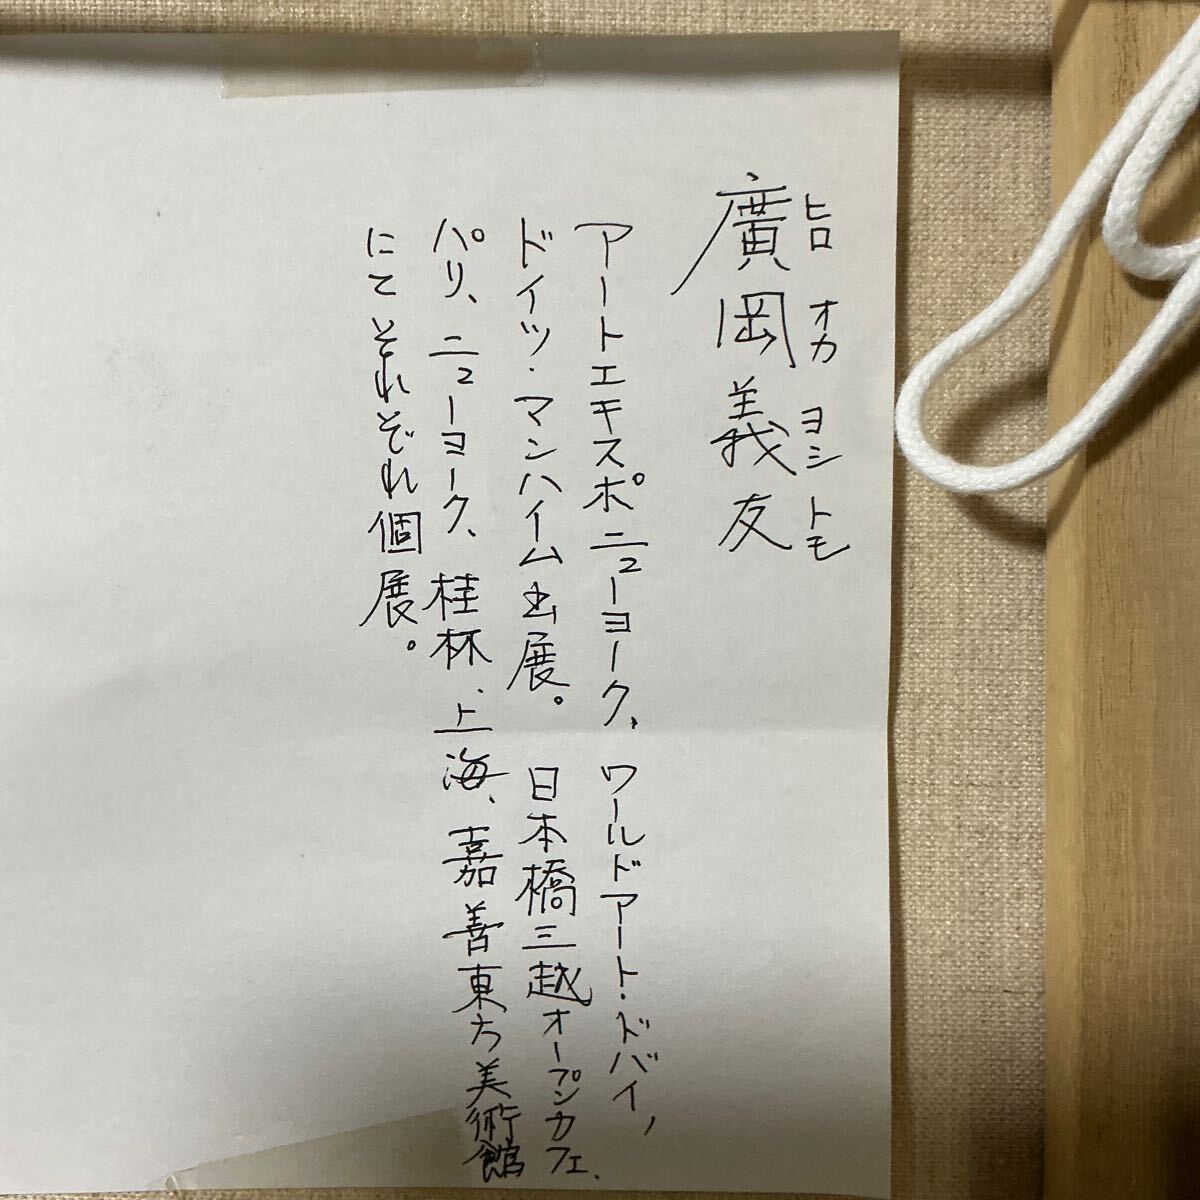 ヒロ オカ ヨシ トモ
廣岡義友
アートエキスポニューヨーク、ワールドアート・ドバイ、
ドイツ・マンハイム出展。日本橋三越オープンカフェ、
パリ、ニューヨーク、桂林、上海、嘉善東方美術館
にてそれぞれ個展。